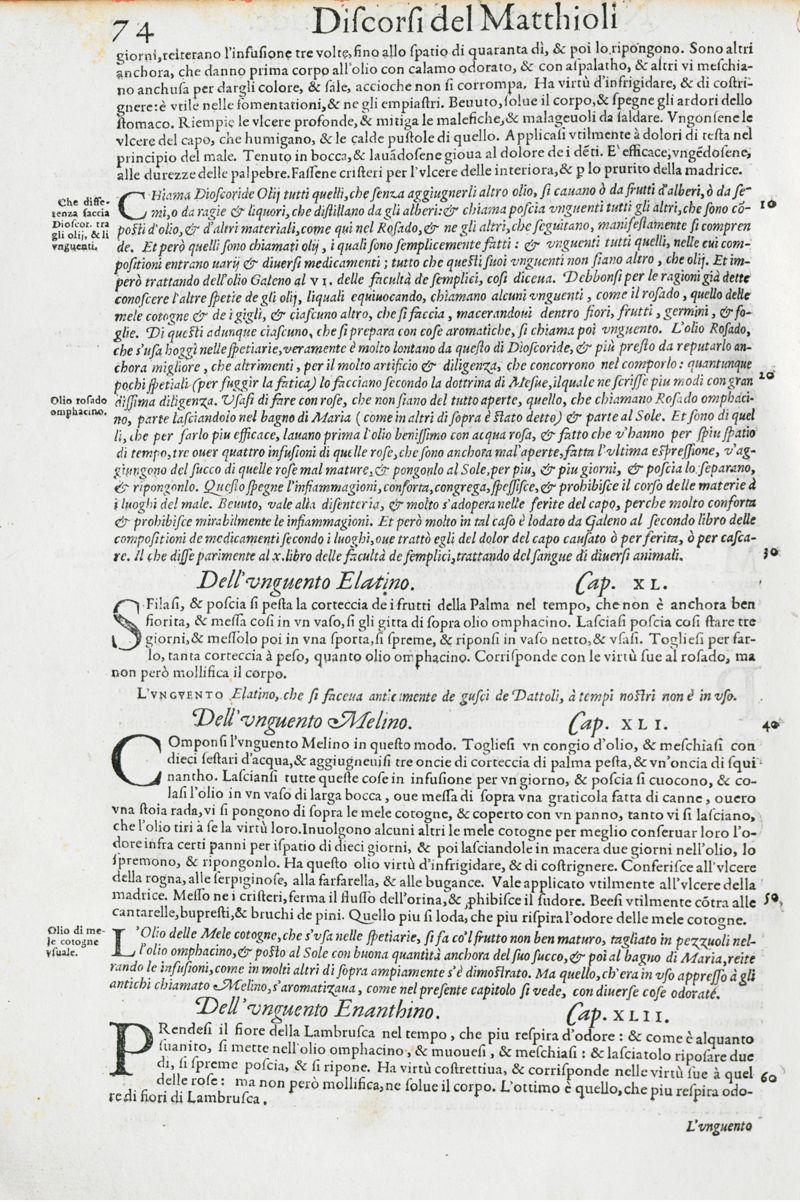 74
Discorsi del Matthioli
giorni, reiterano l'infusione tre volte, fino allo spatio di quaranta dì, & poi lo ripongono. Sono altri
anchora, che danno prima corpo all'olio con calamo odorato, & con aspalatho, & altri vi meschia-
no anchusa per dargli colore, & sale, accioche non si corrompa. Ha virtù d'infrigidare, & di costri-
gnere: è vtile nelle fomentationi, & ne gli empiastri. Beuuto, solue il corpo, & spegne gli ardori dello
stomaco. Riempie le vlcere profonde, & mitiga le malefiche, & malageuoli da saldare. Vngonsene le
vlcere del capo, che humigano, & le calde pustole di quello. Applicasi vtilmente à dolori di testa nel
principio del male. Tenuto in bocca, & lauãdosene gioua al dolore de i dẽti. E' efficace, vngẽdosene,
alle durezze delle palpebre. Fassene cristeri per l'vlcere delle interiora, & p lo prurito della madrice.
Che diffe-
renza faccia
Dioscor. tra
gli olij, & li
vnguenti.
CHiama Dioscoride Olij tutti quelli, che senza aggiugnerli altro olio, si cauano ò da frutti d'alberi, ò da se-
mi, o da ragie & liquori, che distillano da gli alberi: & chiama poscia vnguenti tutti gli altri, che sono cõ-
10
posti d'olio, & d'altri materiali, come qui nel Rosado, & ne gli altri, che seguitano, manifestamente si compren
de. Et però quelli sono chiamati olij, i quali sono semplicemente fatti: & vnguenti tutti quelli, nelle cui com-
positioni entrano uarij & diuersi medicamenti; tutto che questi suoi vnguenti non siano altro, che olij. Et im-
però trattando dell'olio Galeno al VI. delle facultà de semplici, cosi diceua. Debbonsi per le ragioni già dette
conoscere l'altre spetie de gli olij, liquali equiuocando, chiamano alcuni vnguenti, come il rosado, quello delle
mele cotogne & de i gigli, & ciascuno altro, che si faccia, macerandoui dentro fiori, frutti, germini, & fo-
glie. Di questi adunque ciascuno, che si prepara con cose aromatiche, si chiama poi vnguento. L'olio Rosado,
che s'usa hoggi nelle spetiarie, veramente è molto lontano da questo di Dioscoride, & più presto da reputarlo an-
chora migliore, che altrimenti, per il molto artificio & diligenza, che concorrono nel comporlo: quantunque
20
pochi spetiali (per fuggir la fatica) lo facciano secondo la dottrina di Mesue, ilquale ne scrisse piu modi con gran
Olio rosado
omphacino.
dissima diligenza. Vsasi di fare con rose, che non siano del tutto aperte, quello, che chiamano Rosado omphaci-
no, parte lasciandolo nel bagno di Maria (come in altri di sopra è stato detto) & parte al Sole. Et sono di quel
li, che per farlo piu efficace, lauano prima l'olio benissimo con acqua rosa, & fatto che v'hanno per spiu spatio
di tempo, tre ouer quattro infusioni di quelle rose, che sono anchora mal'aperte, fatta l'vltima espressione, v'ag-
giungono del succo di quelle rose mal mature, & pongonlo al Sole, per piu, & piu giorni, & poscia lo separano,
& ripongonlo. Questo spegne l'infiammagioni, conforta, congrega, spessisce, & prohibisce il corso delle materie à
i luoghi del male. Beuuto, vale alla disenteria, & molto s'adopera nelle ferite del capo, perche molto conforta
& prohibisce mirabilmente le infiammagioni. Et però molto in tal caso è lodato da Galeno al secondo libro delle
compositioni de medicamenti secondo i luoghi, oue trattò egli del dolor del capo causato ò per ferita, ò per casca-
re. Il che disse parimente al x. libro delle facultà de semplici, trattando del sangue di diuersi animali.
30
Dell'vnguento Elatino. Cap. XL.
SFilasi, & poscia si pesta la corteccia de i frutti della Palma nel tempo, che non è anchora ben
fiorita, & messa cosi in vn vaso, si gli gitta di sopra olio omphacino. Lasciasi poscia cosi stare tre
giorni, & messolo poi in vna sporta, si spreme, & riponsi in vaso netto, & vsasi. Togliesi per far-
lo, tanta corteccia à peso, quanto olio omphacino. Corrisponde con le virtù sue al rosado, ma
non però mollifica il corpo.
L'VNGVENTO Elatino, che si faceua anticamente de gusci de Dattoli, à tempi nostri non è in vso.
Dell'vnguento Melino. Cap. XLI.
40
COmponsi l'vnguento Melino in questo modo. Togliesi vn congio d'olio, & meschiasi con
dieci sestari d'acqua, & aggiugneuisi tre oncie di corteccia di palma pesta, & vn'oncia di squi
nantho. Lasciansi tutte queste cose in infusione per vn giorno, & poscia si cuocono, & co-
lasi l'olio in vn vaso di larga bocca, oue messa di sopra vna graticola fatta di canne, ouero
vna stoia rada, vi si pongono di sopra le mele cotogne, & coperto con vn panno, tanto vi si lasciano,
che l'olio tiri à se la virtù loro. Inuolgono alcuni altri le mele cotogne per meglio conseruar loro l'o-
dore infra certi panni per ispatio di dieci giorni, & poi lasciandole in macera due giorni nell'olio, lo
spremono, & ripongonlo. Ha questo olio virtù d'infrigidare, & di costrignere. Conferisce all'vlcere
della rogna, alle serpiginose, alla farfarella, & alle bugance. Vale applicato vtilmente all'vlcere della
madrice. Messo ne i cristeri, ferma il flusso dell'orina, & phibisce il sudore. Beesi vtilmente cõtra alle
50
cantarelle, bupresti, & bruchi de pini. Quello piu si loda, che piu rispira l'odore delle mele cotogne.
Olio di me-
le cotogne
vsuale.
L'Olio delle Mele cotogne, che s'vsa nelle spetiarie, si fa co'l frutto non ben maturo, tagliato in pezzuoli nel-
l'olio omphacino, & posto al Sole con buona quantità anchora del suo succo, & poi al bagno di Maria, reite
rando le infusioni, come in molti altri di sopra ampiamente s'è dimostrato. Ma quello, ch'era in vso appresso à gli
antichi chiamato Melino, s'aromatizaua, come nel presente capitolo si vede, con diuerse cose odorate.
Dell'vnguento Enanthino. Cap. XLII.
PRendesi il fiore della Lambrusca nel tempo, che piu respira d'odore: & come è alquanto
suanito, si mette nell'olio omphacino, & muouesi, & meschiasi: & lasciatolo riposare due
dì, si spreme poscia, & si ripone. Ha virtù costrettiua, & corrisponde nelle virtù sue à quel
delle rose: ma non però mollifica, ne solue il corpo. L'ottimo è quello, che piu respira odo-
60
re di fiori di Lambrusca.
L'vnguento